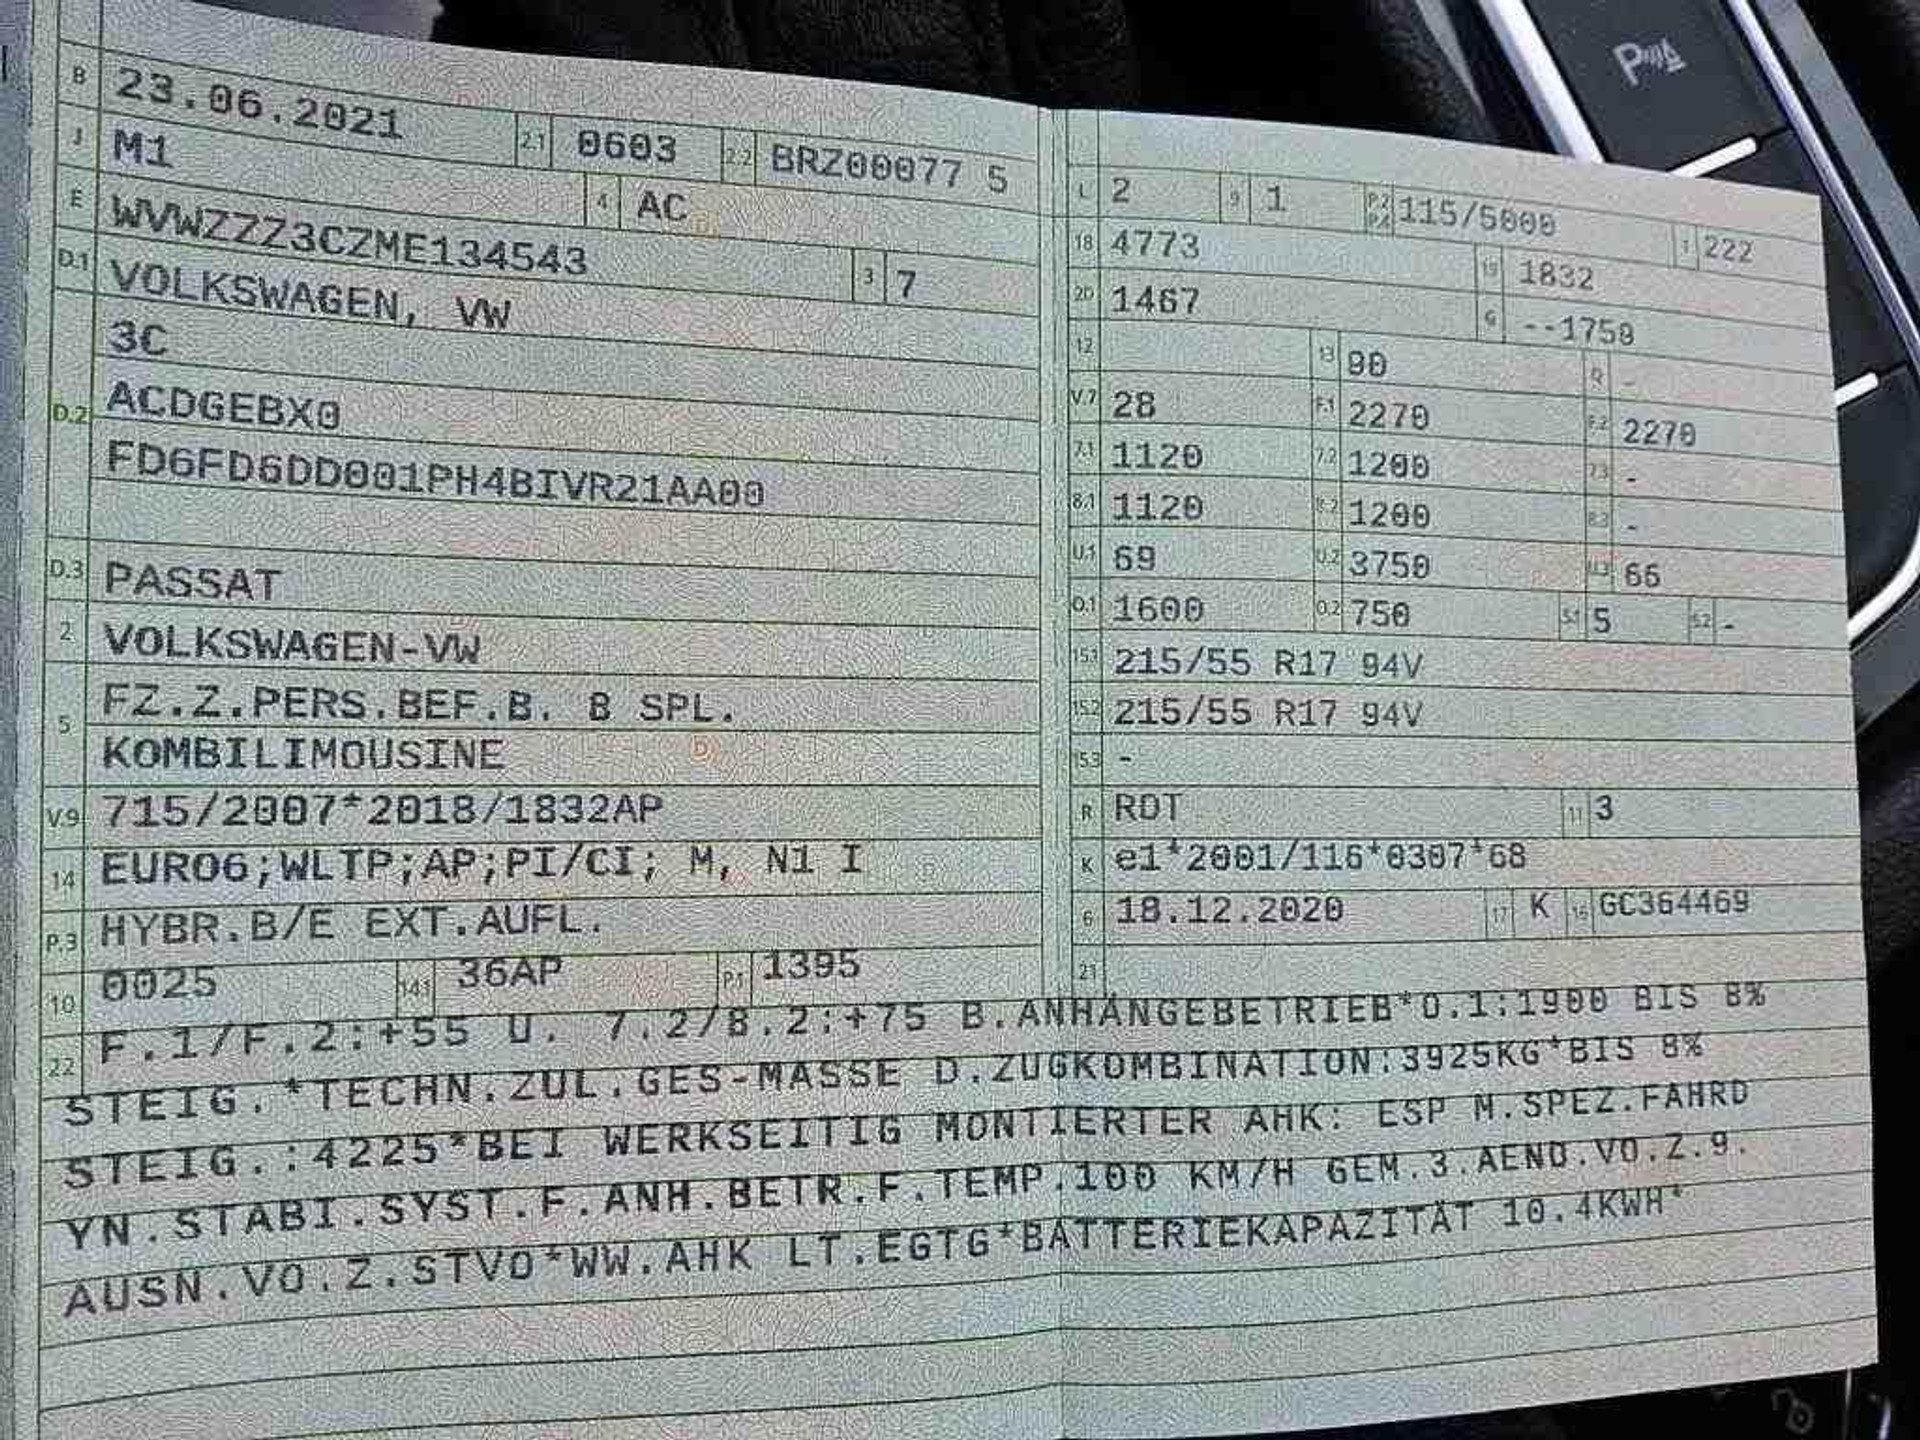 B 23.06.2021 2.1 0603 2.2 BRZ00077 5
J M1 4 AC
E WVWZZZ3CZME134543 3 7
D.1 VOLKSWAGEN, VW
D.2 3C
ACDGEBX0
FD6FD6DD001PH4BIVR21AA00
D.3 PASSAT
2 VOLKSWAGEN-VW
5 FZ.Z.PERS.BEF.B. 8 SPL.
KOMBILIMOUSINE
V.9 715/2007*2018/1832AP
14 EURO6;WLTP;AP;PI/CI; M, N1 I
P.3 HYBR.B/E EXT.AUFL.
10 0025 14.1 36AP P.1 1395
L 2 9 1 P.2 P.4 115/5000 T 222
18 4773 19 1832
20 1467 G --1750
12 13 90 Q -
V.7 28 F.1 2270 F.2 2270
7.1 1120 7.2 1200 7.3 -
8.1 1120 8.2 1200 8.3 -
U.1 69 U.2 3750 U.3 66
O.1 1600 O.2 750 S.1 5 S.2 -
15.1 215/55 R17 94V
15.2 215/55 R17 94V
15.3 -
R ROT 11 3
K e1*2001/116*0307*68
6 18.12.2020 17 K 16 GC364469
21
22 F.1/F.2:+55 U. 7.2/8.2:+75 B.ANHÄNGEBETRIEB*O.1:1900 BIS 8%
STEIG.*TECHN.ZUL.GES-MASSE D.ZUGKOMBINATION:3925KG*BIS 8%
STEIG.:4225*BEI WERKSEITIG MONTIERTER AHK: ESP M.SPEZ.FAHRD
YN.STABI.SYST.F.ANH.BETR.F.TEMP.100 KM/H GEM.3.AEND.VO.Z.9.
AUSN.VO.Z.STVO*WW.AHK LT.EGTG*BATTERIEKAPAZITÄT 10.4KWH*